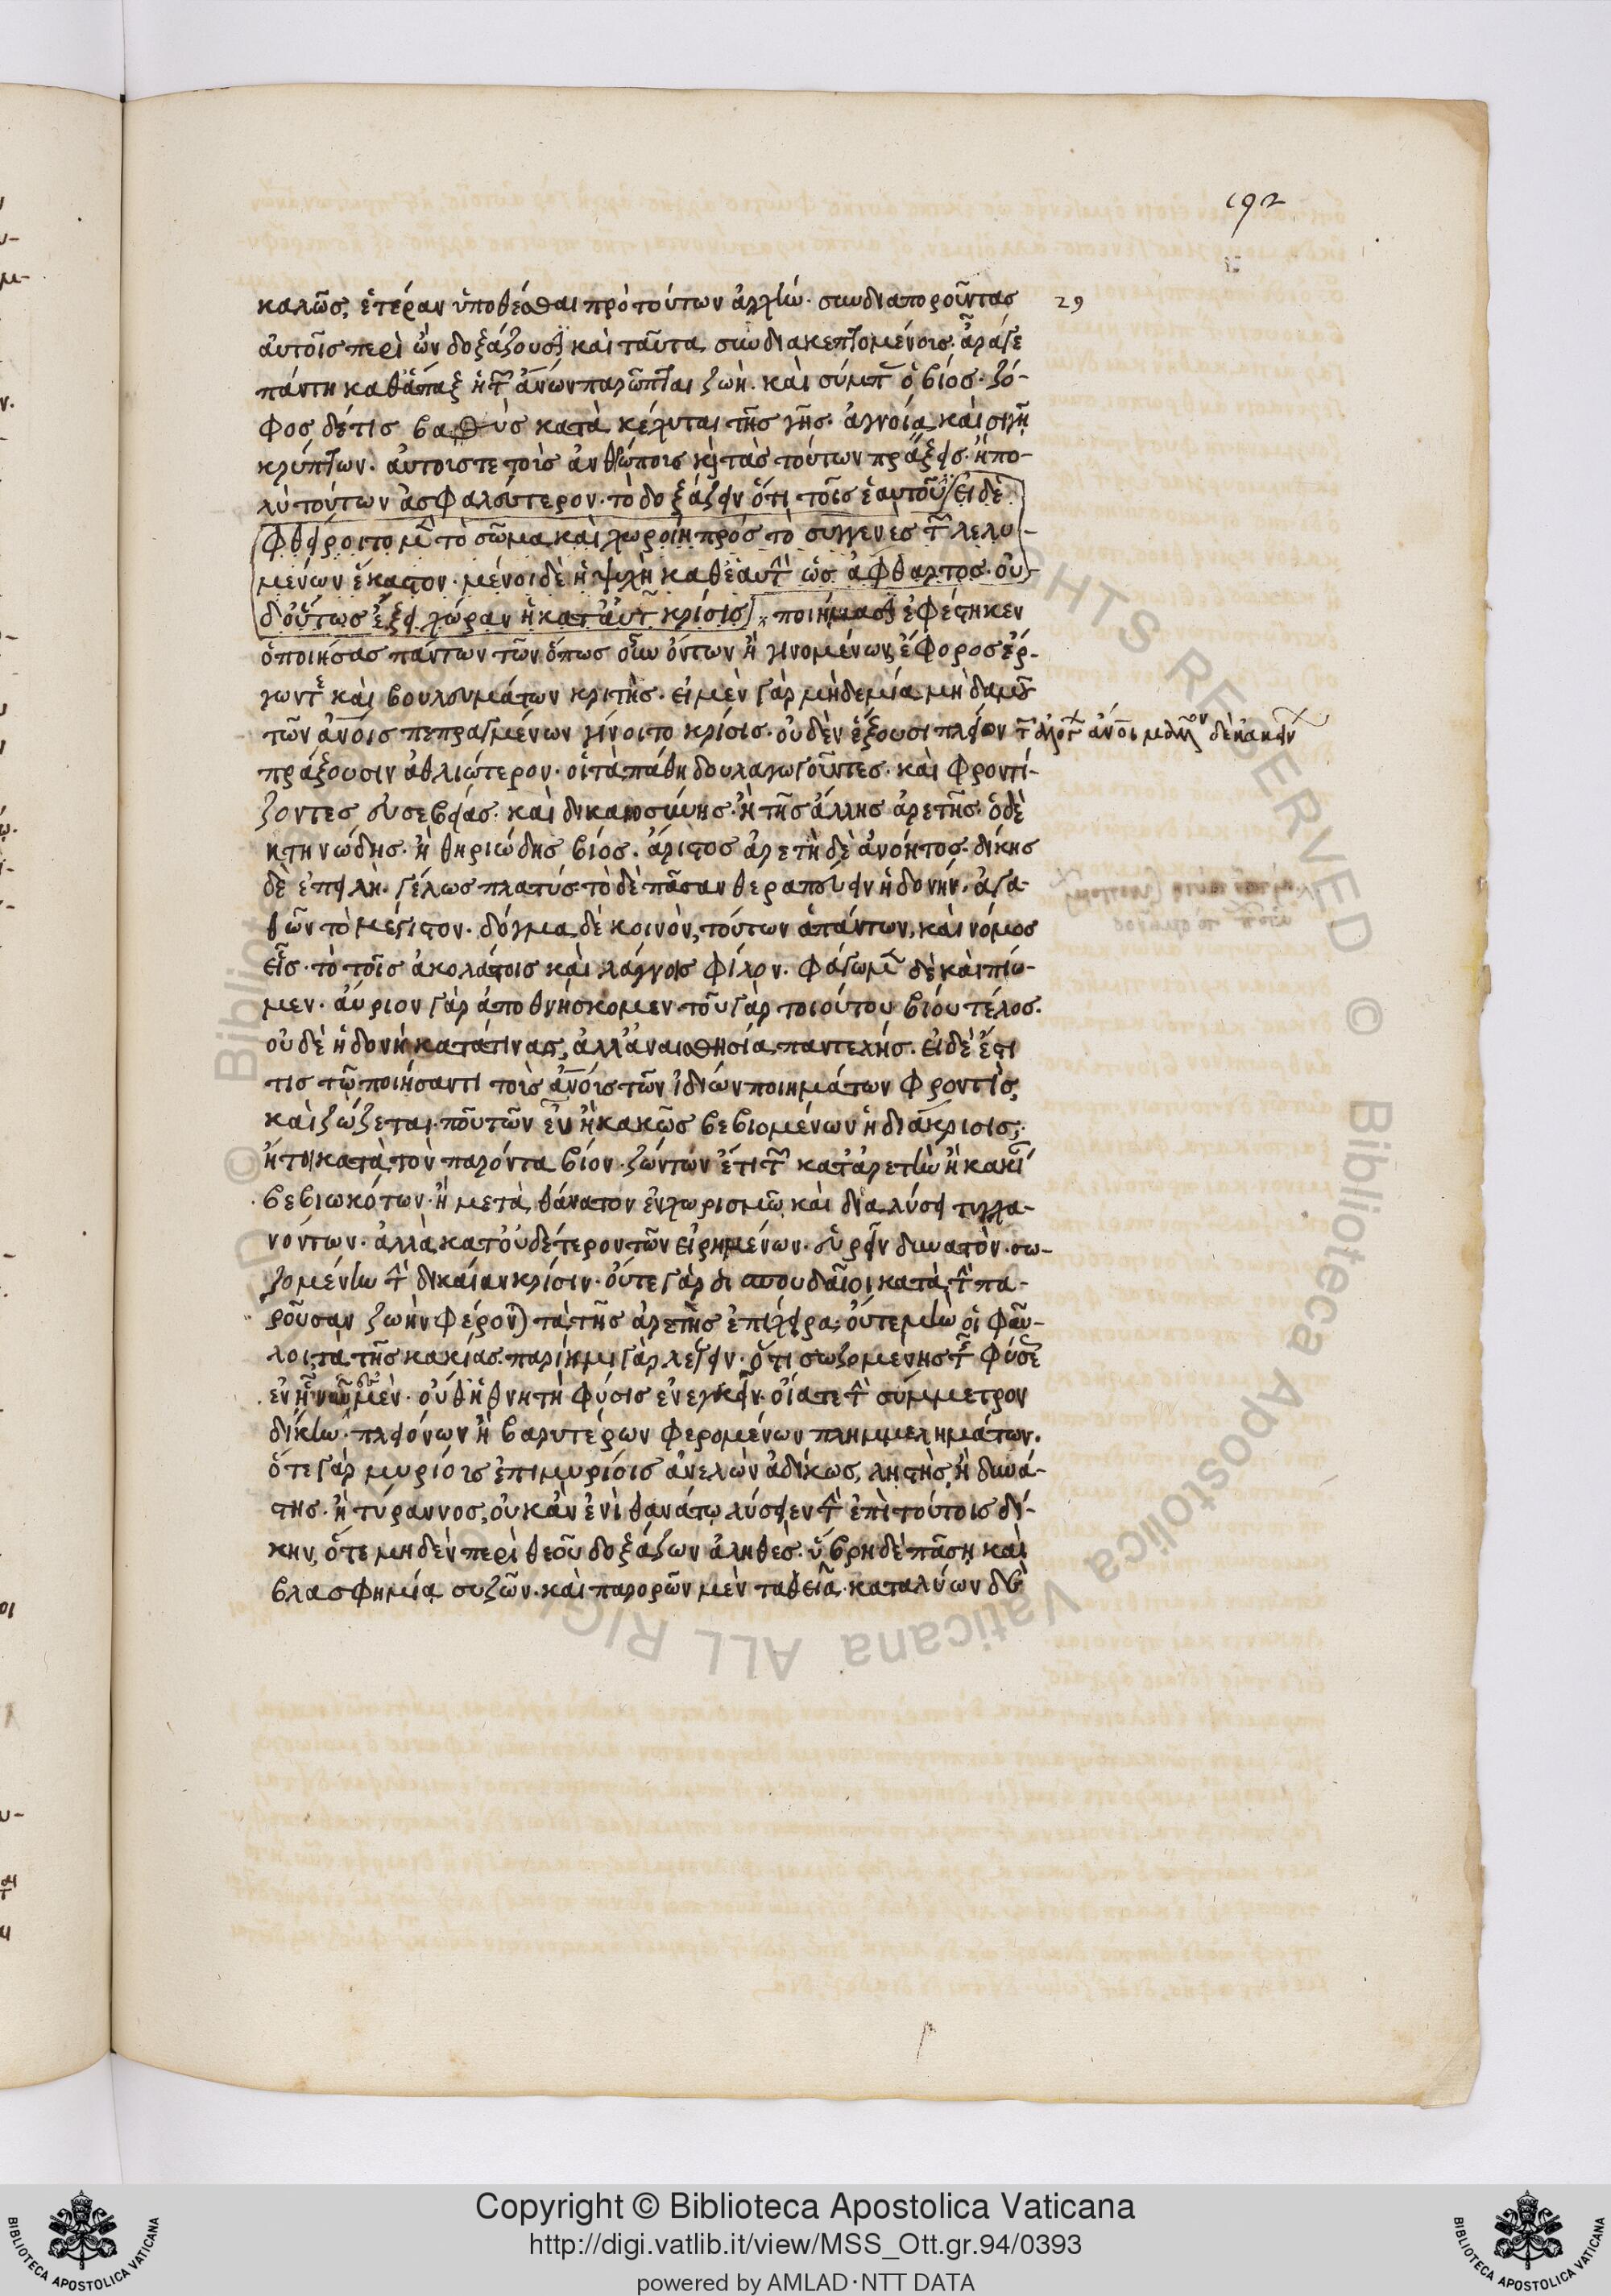 192
καλῶς, ἑτέραν ὑποθέσθαι πρὸ τούτων ἀρχήν. συνδιαποροῦντας 29
αὐτοῖς περὶ ὧν δοξάζουσι καὶ ταῦτα συνδιασκεπτομένοις. ἆρά γε
πάντη καθάπαξ ἡ τῶν ἀνων παρῶπται ζωὴ. καὶ σύμπας ὁ βίος. ζό-
φος δέ τις βαθὺς κατὰ κέχυται τῆς γῆς. ἀγνοία καὶ σιγῇ
κρύπτων. αὐτούς τε τοὺς ἀνθρώπους καὶ τὰς τούτων πράξεις. ἢ πο-
λὺ τούτων ἀσφαλέστερον. τὸ δοξάζειν ὅτι τοῖς ἑαυτοῦ / εἰ δὲ
φθείροιτο μὲν τὸ σῶμα καὶ χωροίη πρός τὸ συγγενὲς τῶν λελυ-
μένων ἕκαστον. μένοι δὲ ἡ ψυχὴ καθ' ἑαυτὴν ὡς ἀφθαρτος. οὐ
δ' οὕτως ἕξει χώραν ἡ κατ' αὐτῆς κρίσις ποιήμασι ἐφέστηκεν
ὁ ποιήσας πάντων τῶν ὅπως οὖν ὄντων ἢ γινομένων ἔφορος ἔρ-
γων τὲ καὶ βουλευμάτων κριτὴς. εἰ μὲν γὰρ μηδεμία μὴδαμοῦ
τῶν ἀνοις πεπραγμένων γίνοιτο κρίσις. οὐδὲν ἕξουσι πλεῖον τῶν ἀλόγων ἀνοι μᾶλλον δὲ κἀκείνων
πράξουσιν ἀθλιώτερον. οἱ τὰ πάθη δουλαγωγοῦντες. καὶ φροντί-
ζοντες εὐσεβείας. καὶ δικαιοσύνης. ἢ τῆς ἄλλης ἀρετῆς. ὁ δὲ
κτηνώδης. ἢ θηριώδης βίος. ἄριστος ἀρετὴ δὲ ἀνόητος. δίκης
δὲ ἀπειλὴ. γέλως πλατύς. τὸ δὲ πᾶσαν θεραπεύειν ἡδονήν. ἀγα-
θῶν τὸ μέγιστον. δόγμα δὲ κοινὸν, τούτων ἁπάντων, καὶ νόμος
εἷς. τὸ τοῖς ἀκολάστοις καὶ λάγνοις φίλον. φάγωμεν δὲ καὶ πίω-
μεν. αὔριον γὰρ ἀποθνήσκομεν. τοῦ γὰρ τοιούτου βίου τέλος.
οὐδὲ ἡδονὴ κατά τινας, ἀλλ' ἀναισθησία παντελής. εἰ δὲ ἔστι
τις τῷ ποιήσαντι τοὺς ἀνους τῶν ἰδίων ποιημάτων φροντὶς,
καὶ σώζεται που τῶν εὖ ἢ κακῶς βεβιομένων ἡ διάκρισις,
ἤτοι κατὰ τὸν παρόντα βίον. ζώντων ἔτι τῶν κατ' ἀρετὴν ἢ κακίαν
βεβιωκότων. ἢ μετὰ θάνατον ἐν χωρισμῶ καὶ διαλύσει τυγχα-
νόντων. ἀλλὰ κατ' οὐδέτερον τῶν εἰρημένων. εὑρεῖν δυνατὸν. σω-
ζομένην τὴν δικαίαν κρίσιν. οὔτε γὰρ οἱ σπουδαῖοι κατὰ τὴν πα-
ροῦσαν ζωὴν φέρονται τὰ τῆς ἀρετῆς ἐπίχειρα. οὔτε μὴν οἱ φαῦ-
λοι, τὰ τῆς κακίας. παρίημι γὰρ λέγειν. ὅτι σωζομένης τῆς φύσεως
ἐν ᾗ νῦν ἐσμὲν. οὐθ' ἡ θνητὴ φύσις ἐνεγκεῖν. οἵα τε τὴν σύμμετρον
δίκην. πλειόνων ἢ βαρυτέρων φερομένων πλημμελημάτων.
ὅτε γὰρ μυρίους ἐπὶ μυρίοις ἀνελὼν ἀδίκως, λῃστὴς ἢ δυνά-
στης. ἢ τύραννος, οὐκ ἂν ἑνὶ θανάτῳ λύσειεν τὴν ἐπὶ τούτοις δί-
κην, ὅτε μηδὲν περὶ θεοῦ δοξάζων ἀληθὲς. ὕβρει δὲ πάσῃ καὶ
βλασφημίᾳ συζῶν. καὶ παρορῶν μὲν τὰ θεῖα. καταλύων δὲ
Copyright © Biblioteca Apostolica Vaticana
http://digi.vatlib.it/view/MSS_Ott.gr.94/0393
powered by AMLAD·NTT DATA
BIBLIOTECA APOSTOLICA VATICANA
BIBLIOTECA APOSTOLICA VATICANA